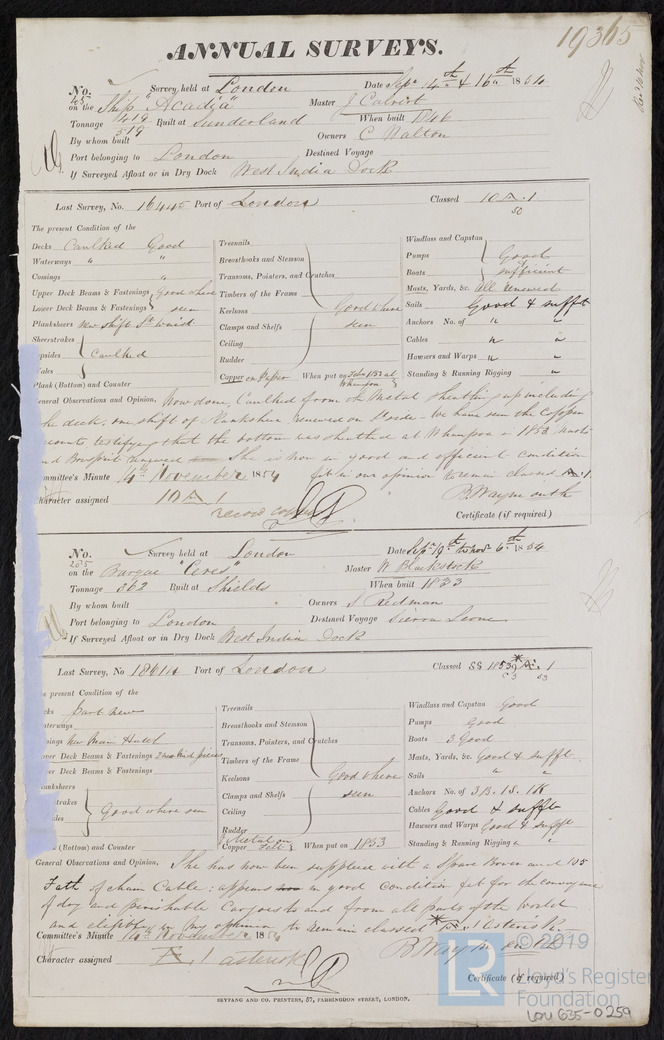 19365
ANNUAL SURVEYS.
No. 45 Survey held at London Date Sepr. 14th & 16th 1854
on the Ship "Acadia" Master J Calvert
Tonnage 419 519 Built at Sunderland When built 1846
By whom built Owners C Walton
Port belonging to London Destined Voyage
If Surveyed Afloat or in Dry Dock West India Dock
Last Survey, No. 16445 Port of London Classed 10 A.1
50
The present Condition of the
Decks Caulked Good
Waterways " "
Comings "
Upper Deck Beams & Fastenings Good where
Lower Deck Beams & Fastenings seen
Planksheers New shift St waist
Sheerstrakes
Topsides Caulked
Wales
Plank (Bottom) and Counter
Treenails
Breasthooks and Stemson
Transoms, Pointers, and Crutches
Timbers of the Frame
Keelsons Good where
Clamps and Shelfs seen
Ceiling
Rudder
Copper on Paper When put on 1853 at Whampoa
Windlass and Capstan
Pumps Good
Boats sufficient
Masts, Yards, &c. All renewed
Sails Good & suffit
Anchors No. of " "
Cables " "
Hawsers and Warps " "
Standing & Running Rigging "
General Observations and Opinion, Now done, Caulked from the Metal sheathing up including
the deck: one shift of Planksheer renewed on St side - We have seen the Copper
accounts testifying that the bottom was sheathed at Whampoa in 1853 masts
and Bowsprit renewed She is now in good and efficient condition
Committee's Minute 4th November 1854 fit in our opinion to remain classed A.1.
Character assigned 10 A 1 B Waymouth
Certificate (if required)
No. 2035 Survey held at London Date Sepr. 19th to Nov. 6th 1854
on the Barque "Ceres" Master W Blackstock
Tonnage 362 Built at Shields When built 1833
By whom built Owners J Redman
Port belonging to London Destined Voyage Sierra Leone
If Surveyed Afloat or in Dry Dock West India Dock
Last Survey, No 18614 Port of London Classed SS 1853 * 1
53
The present Condition of the
Decks part new
Waterways
Comings New Main Hatch
Upper Deck Beams & Fastenings
Lower Deck Beams & Fastenings
Planksheers
Sheerstrakes
Wales Good where seen
Plank (Bottom) and Counter
Treenails
Breasthooks and Stemson
Transoms, Pointers, and Crutches
Timbers of the Frame
Keelsons Good where
Clamps and Shelfs seen
Ceiling
Rudder
Copper Metal on Felt When put on 1853
Windlass and Capstan Good
Pumps Good
Boats 3 Good
Masts, Yards, &c. Good & suffit.
Sails " "
Anchors No. of 3B. 1S. 1K
Cables Good & suffit
Hawsers and Warps Good & suffit
Standing & Running Rigging " "
General Observations and Opinion, She has now been supplied with a Spare Bower and 105
Fath of chain Cable; appears now in good condition fit for the conveyance
of dry and perishable Cargoes to and from all parts of the World
and eligible in my opinion to remain classed * 1 Asterisk.
Committee's Minute 14th November 1854 B Waymouth
Character assigned A.1 asterisk
Certificate (if required)
SEYFANG AND CO. PRINTERS, 57, FARRINGDON STREET, LONDON.
LR © 2019
Lloyd's Register
Foundation
LON 635-0259